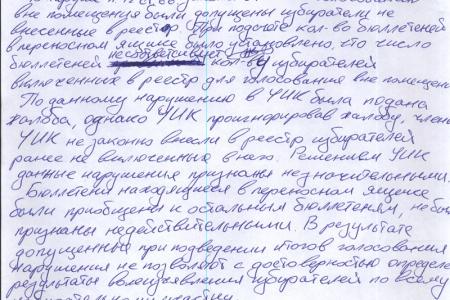 вне помещения были допущены избиратели не
внесенные в реестр. При подсчете кол-во бюллетеней
в переносном ящике было установлено, что число
бюллетеней несоответсвует кол-ву избирателей
включенных в реестр для голосования вне помещени
По данному нарушению в УИК была подана
жалоба, однако УИК проигнорировав жалобу, члены
УИК не законно внесли в реестр избирателей
ранее не включенных в него. Решением УИК
данные нарушения признаны незначительными.
Бюллетени находящиеся в переносном ящике
были приобщены к остальным бюллетеням, не бы
признаны недействительными. В результате
допущенные при подведении итогов голосования
нарушения не позволяют с достоверностью определи
результаты волеизъявления избирателей по всему